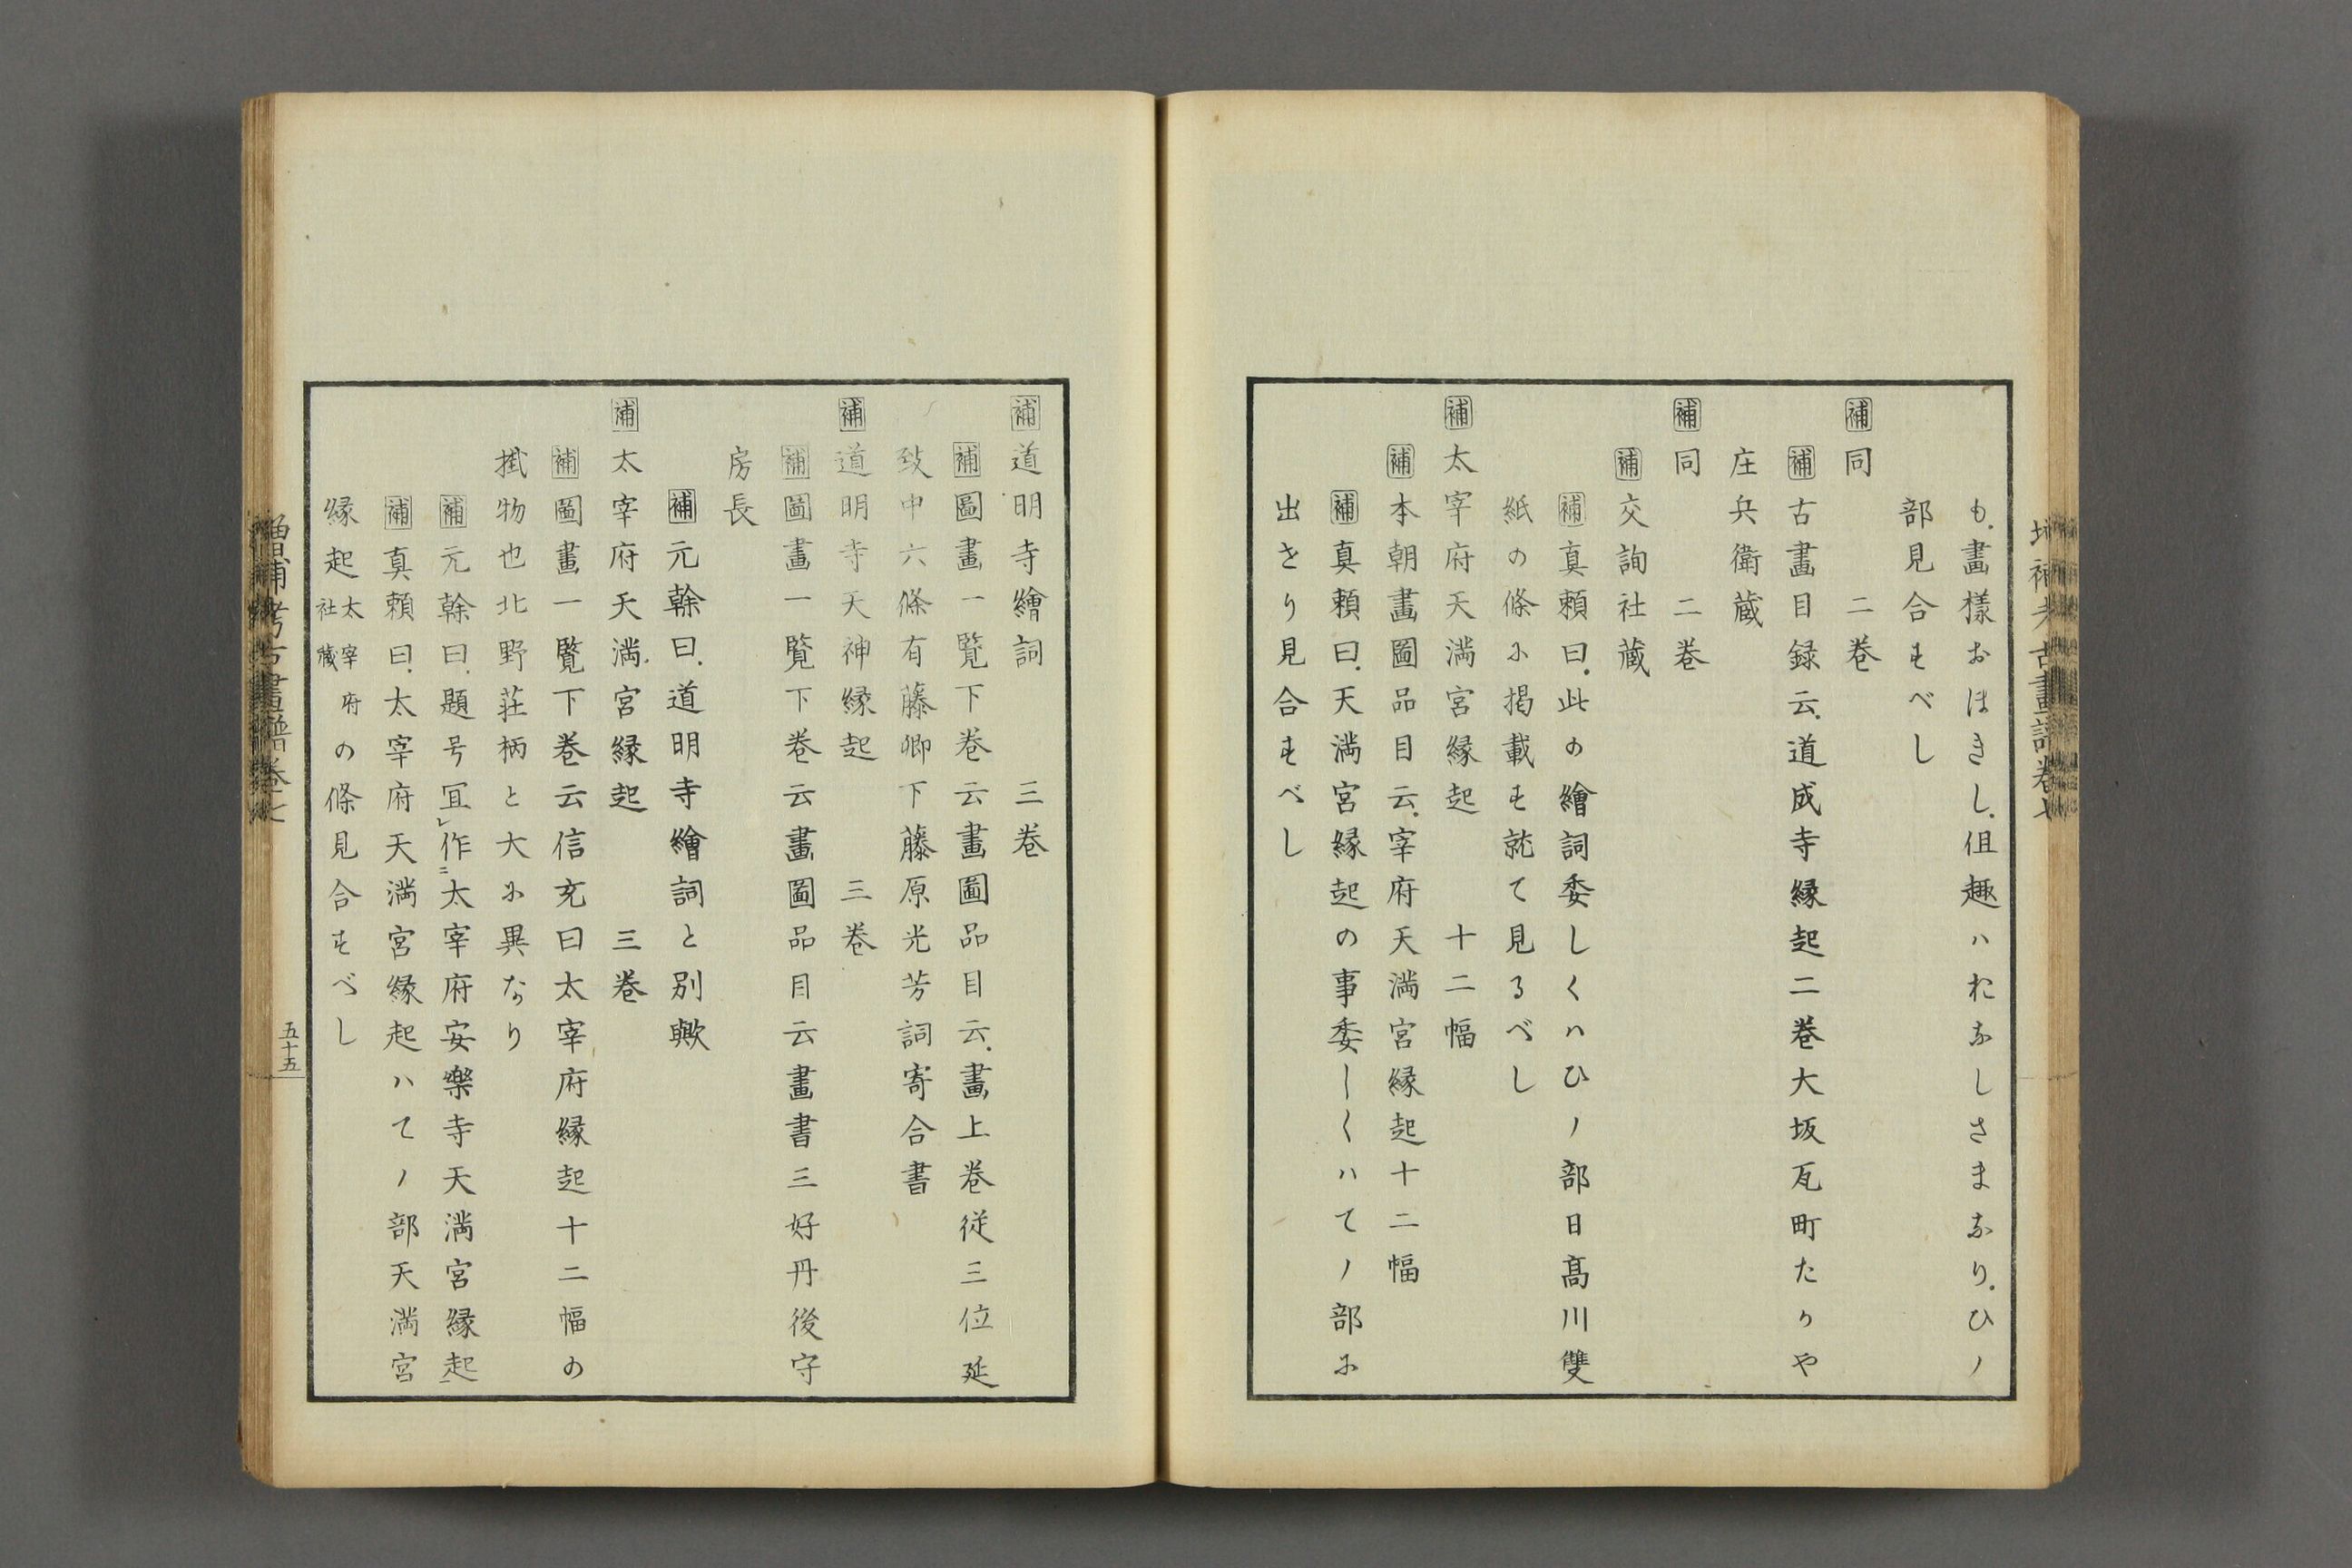 も.畫様おほきし.但趣ハおなしさまなり.ひノ
部見合すべし
補同　二巻
補古畫目録云.道成寺縁起二巻大坂瓦町たりや
庄兵衛蔵
補同　二巻
補交詢社蔵
補真頼曰.此の繪詞委しくハひノ部日髙川雙
紙の條に掲載す就て見るべし
補太宰府天満宮縁起　十二幅
補本朝畫圖品目云.宰府天満宮縁起十二幅
補真頼曰.天満宮縁起の事委しくハてノ部に
出せり見合すべし
補道明寺繪詞　三巻
補圖畫一覧下巻云畫圖品目云.畫上巻従三位延
致中六條有藤卿下藤原光芳詞寄合書
補道明寺天神縁起　三巻
補圖畫一覧下巻云畫圖品目云畫書三好丹後守
房長
補元幹曰.道明寺繪詞と別歟
補太宰府天満宮縁起　三巻
補圖畫一覧下巻云信充曰太宰府縁起十二幅の
掛物也北野荘柄と大に異なり
補元幹曰.題号冝レ作ニ太宰府安樂寺天満宮縁起一
補真頼曰.太宰府天満宮縁起ハてノ部天満宮
縁起太宰府社蔵の條見合すべし
増補考古畫譜巻七
五十五